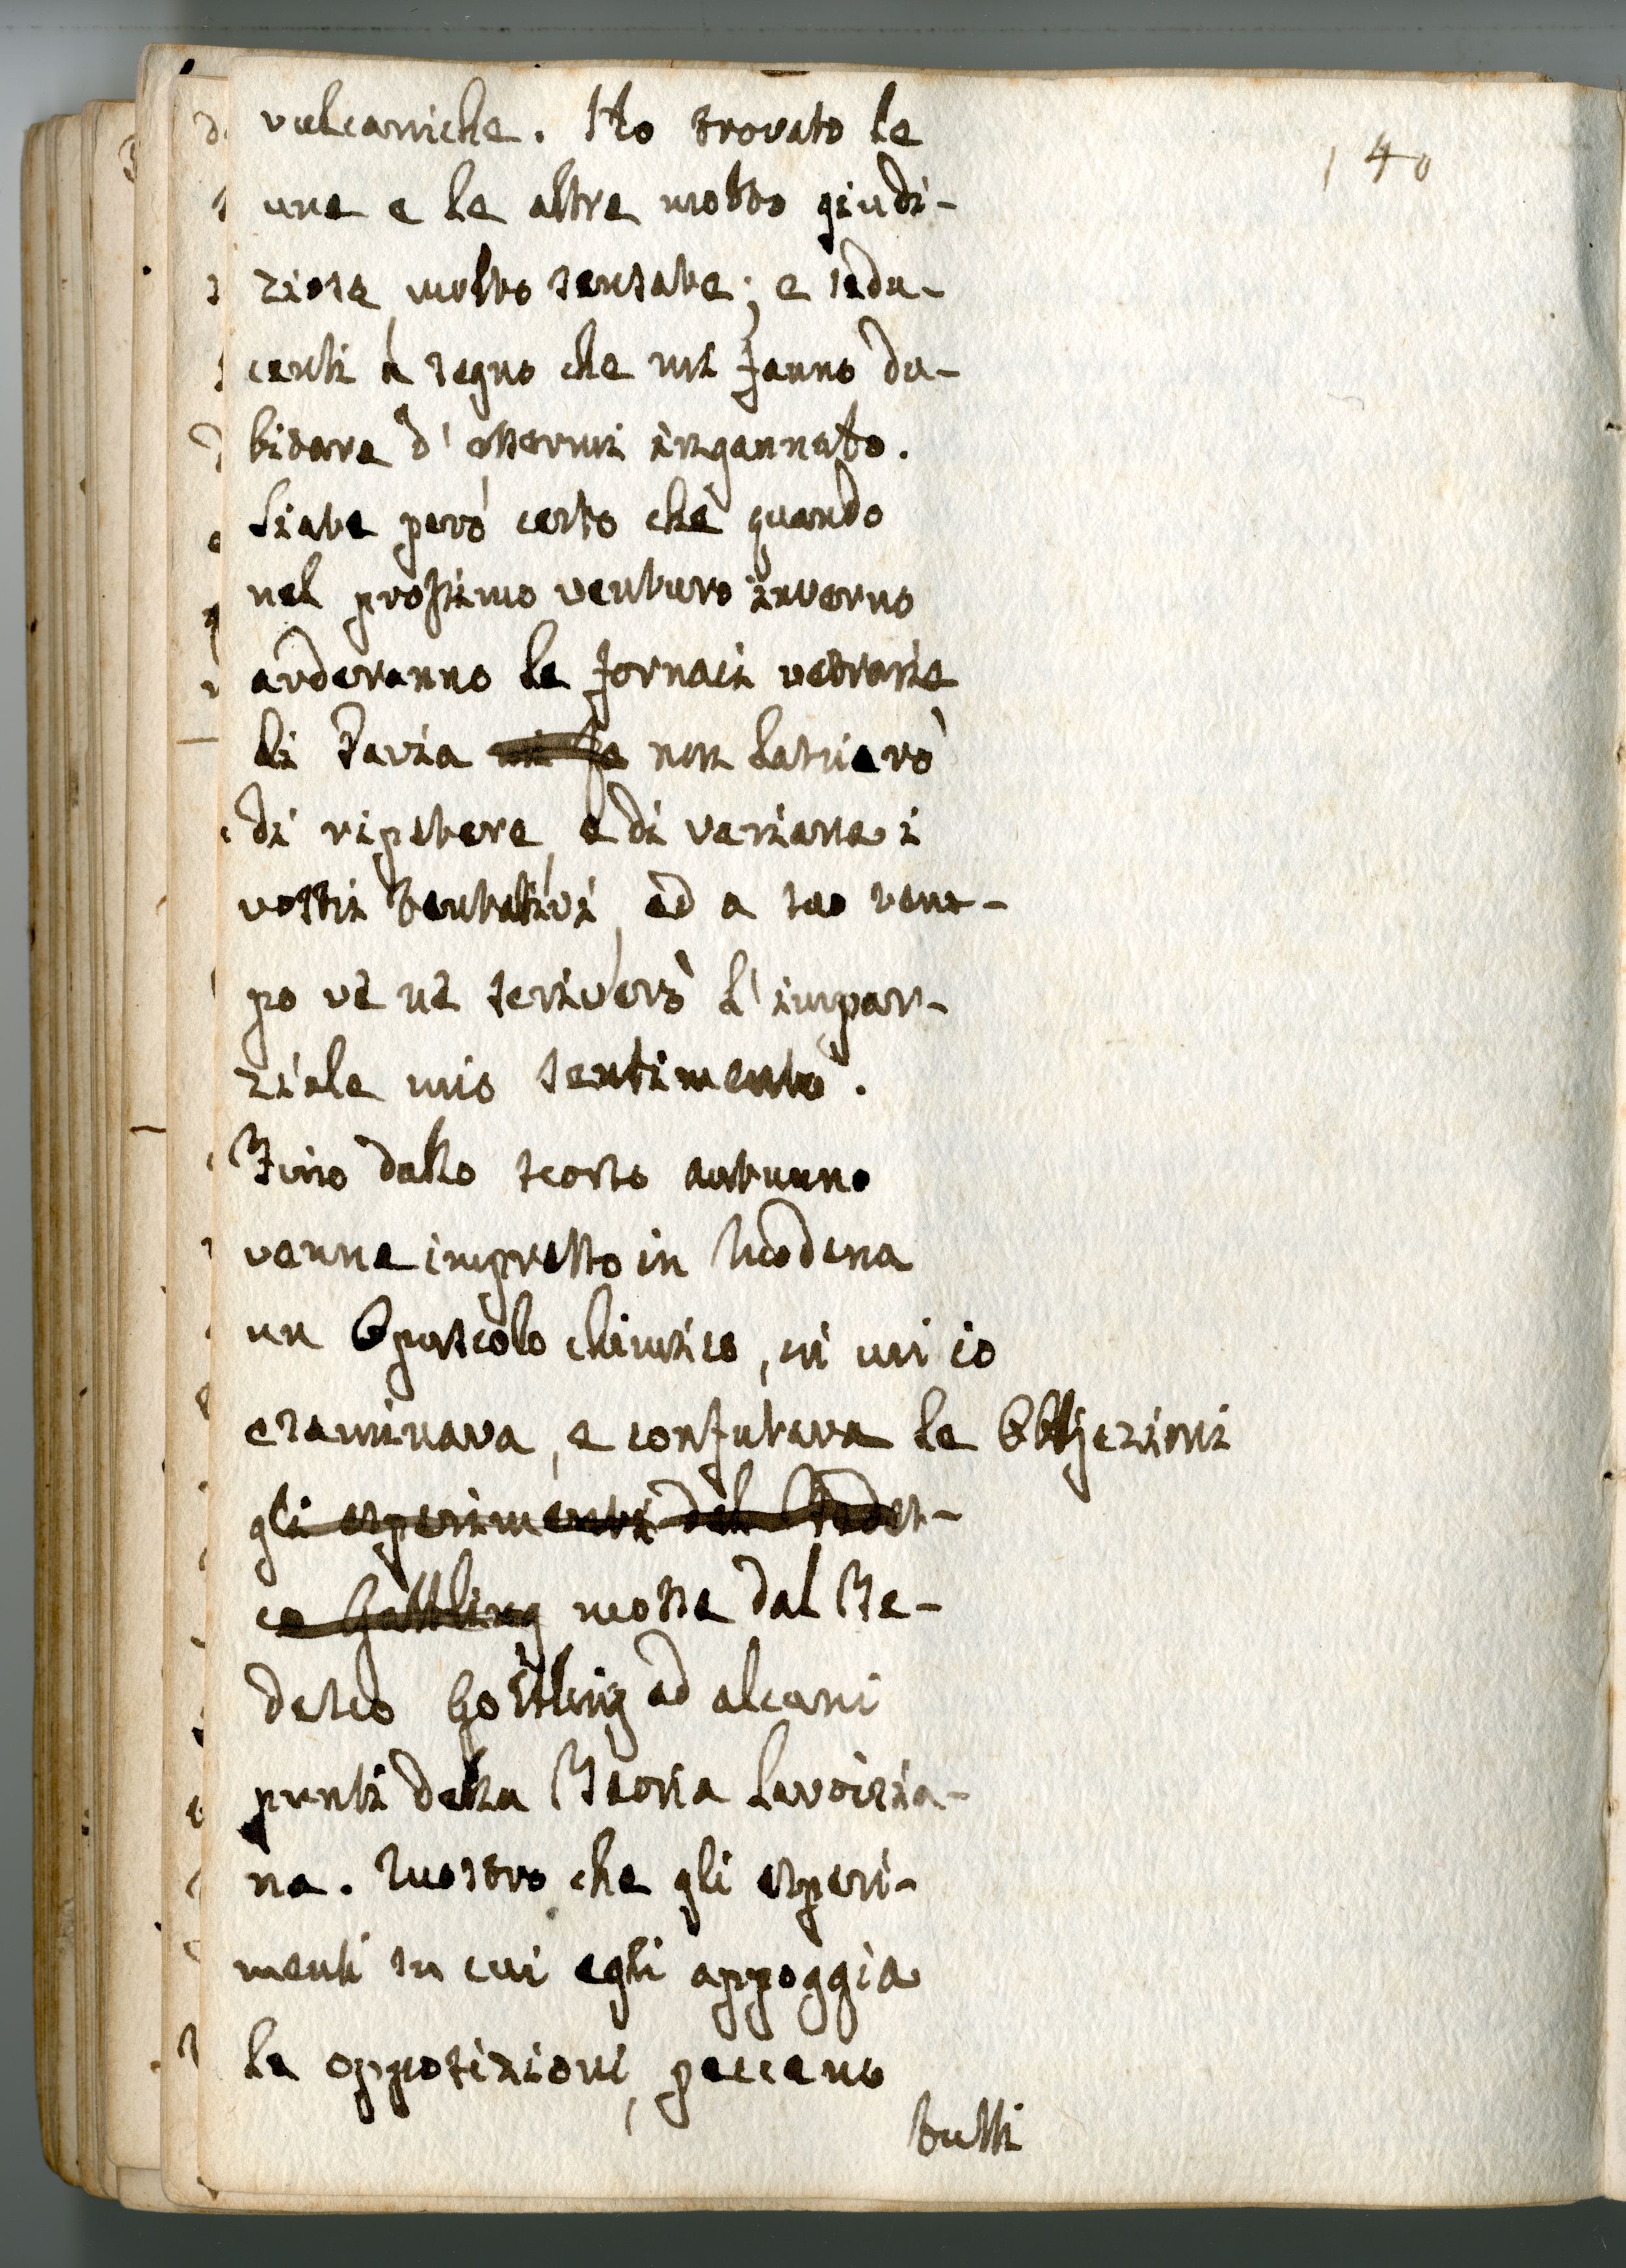 140
vulcaniche. Ho trovato le
une e le altre molto giudi-
ziose, molto sensate; e sedu-
centi a segno che mi fanno du-
bitare d'essermi ingannato.
Siate però certo che quando
nel prossimo venturo inverno
arderanno le fornaci vetrarie
di Pavia non lascierò
di ripetere, e di variare i
vostri tentativi, ed a suo tem-
po ve ne scriverò l'impar-
ziale mio sentimento.
Fino dallo scorso autunno
venne impresso in Modena
un Opuscolo chimico, in cui io
esaminava, e confutava le Obbjezioni
gli esperimenti del Tedes-
co Gottling mosse dal Te-
desco Gottling ad alcuni
punti della Teoria Lavoisia-
na. Mostro che gli esperi-
menti su cui egli appoggia
le opposizioni, peccano
tutti